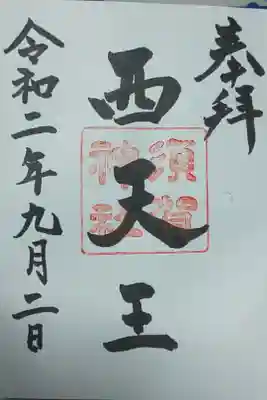 奉拝
西天王
須賀神社
令和二年九月二日